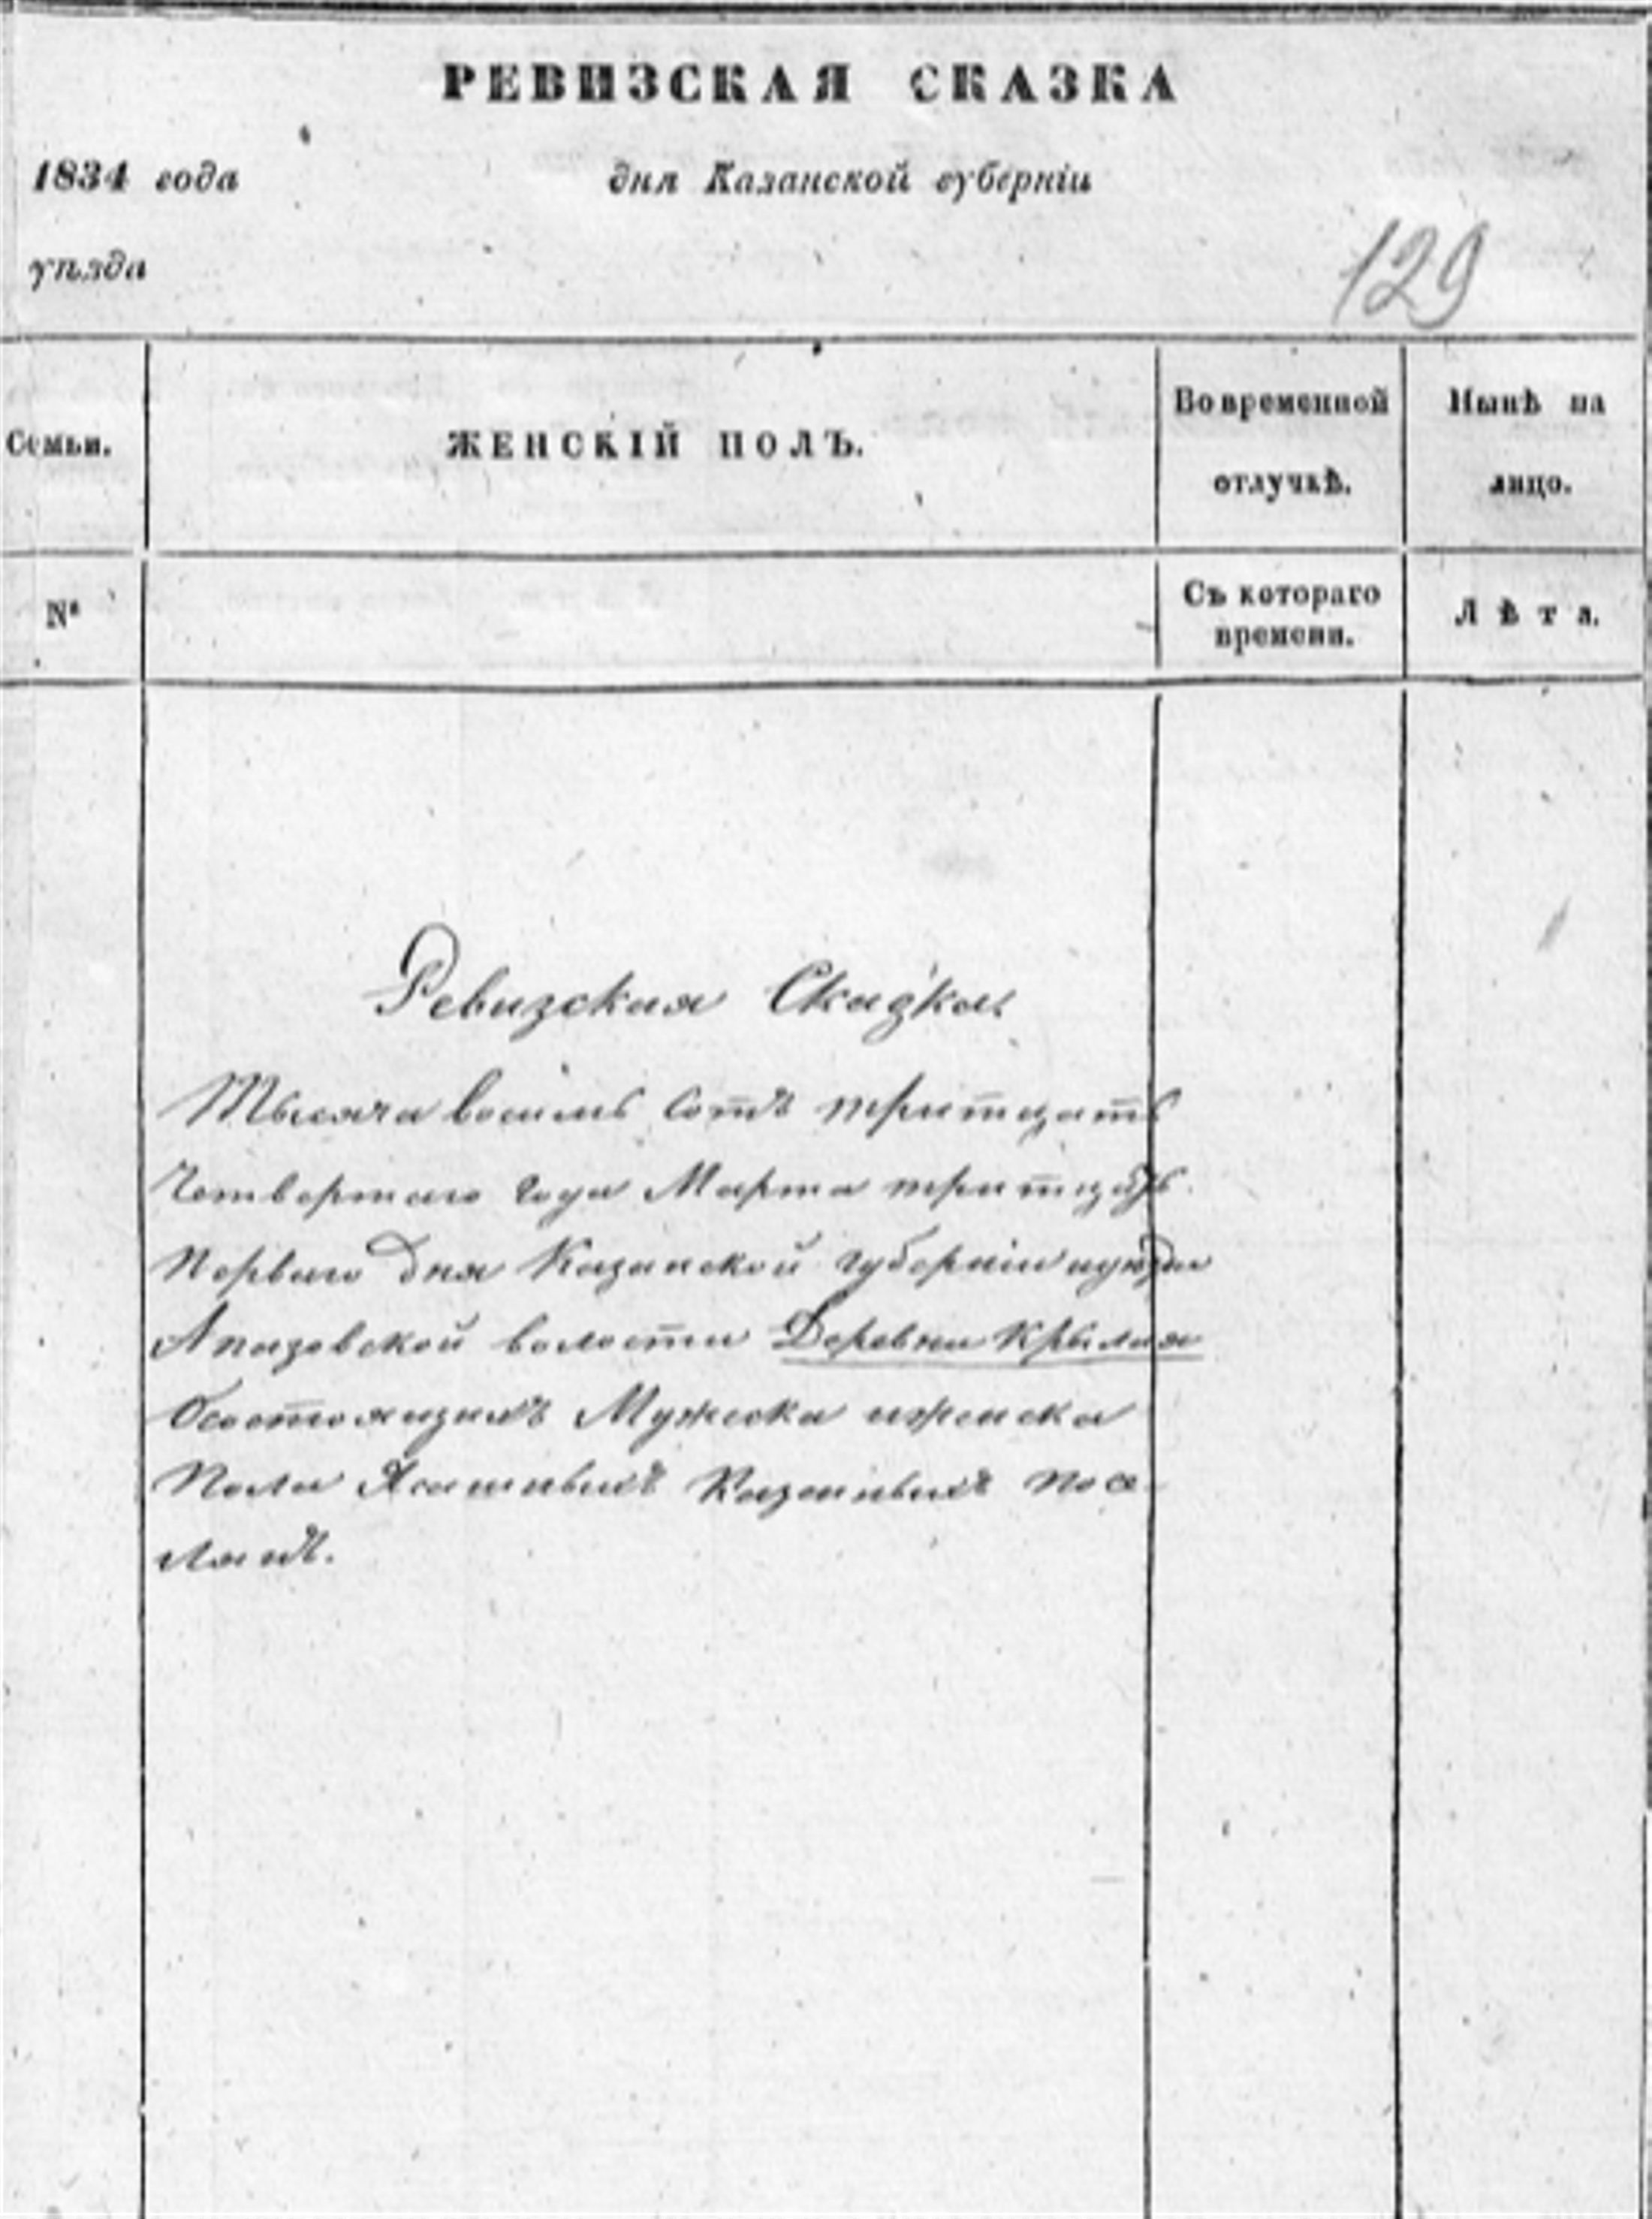 РЕВИЗСКАЯ СКАЗКА
1834 года дня Казанской губерніи
уѣзда
129
Семьи. ЖЕНСКІЙ ПОЛЪ. Во временной отлучкѣ. Нынѣ на лицо.
№ Съ котораго времени. Лѣта.
Ревизская Сказка.
Тысяча восимь сотъ тритцать
Четвертаго Года Марта тритцать
Перваго дня Казанской Губерніи иуѣзда
Апазовской волости Деревни Крылая
Осостоящихъ Мужеска иженска
Пола Ясашныхъ Казенныхъ Посе
лянъ.